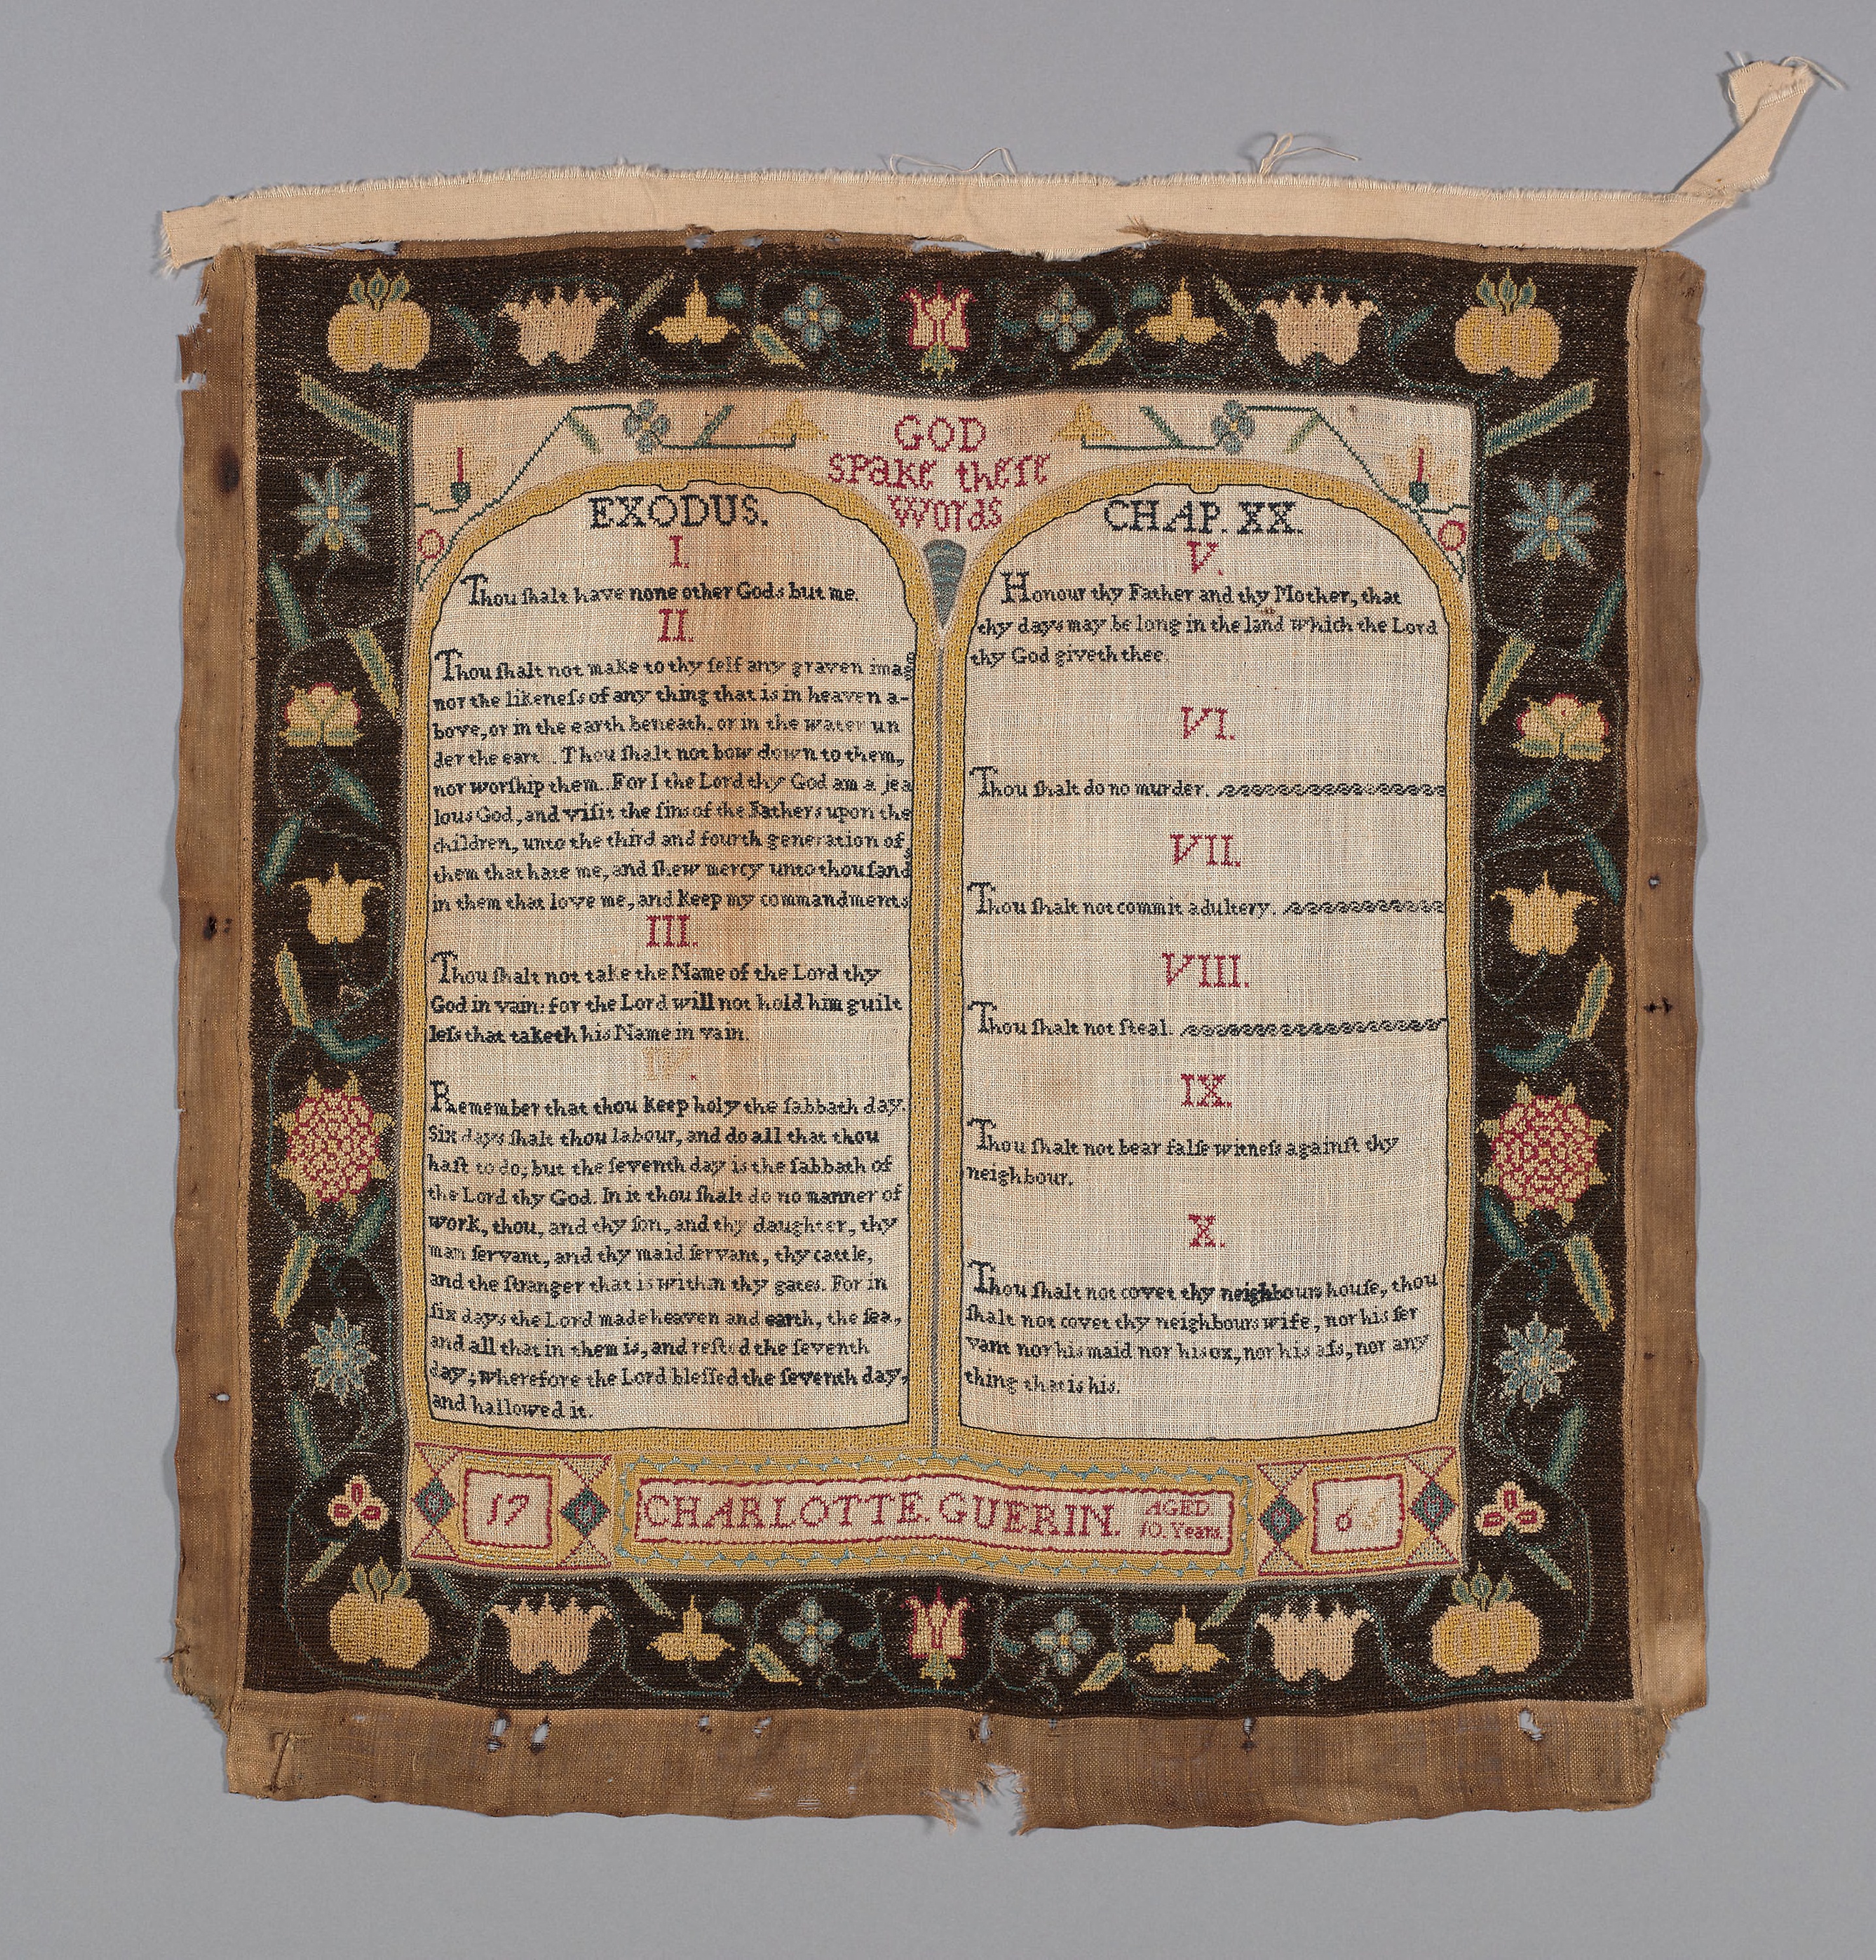 GOD
spake theſe
Words
EXODUS.
I.
Thou ſhalt have none other Gods but me.
II.
Thou ſhalt not make to thy ſelf any graven imag
nor the likeneſs of any thing that is in heaven a-
bove, or in the earth beneath. or in the water un
der the eart . Thou ſhalt not bow down to them,
nor worſhip them. For I the Lord thy God am a jea
lous God, and viſit the ſins of the Fathers upon the
children, unto the third and fourth generation of
them that hate me, and ſhew mercy unto thouſand
in them that love me, and keep my commandments
III.
Thou ſhalt not take the Name of the Lord thy
God in vain: for the Lord will not hold him guilt
leſs that taketh his Name in vain.
IV.
Remember that thou keep holy the ſabbath day.
Six days ſhalt thou labour, and do all that thou
haſt to do; but the ſeventh day is the ſabbath of
the Lord thy God. In it thou ſhalt do no manner of
work, thou, and thy ſon, and thy daughter, thy
man ſervant, and thy maid ſervant, thy cattle,
and the ſtranger that is within thy gates. For in
ſix days the Lord made heaven and earth, the ſea,
and all that in them is, and reſted the ſeventh
day; wherefore the Lord bleſſed the ſeventh day,
and hallowed it.
CHAP. XX.
V.
Honour thy Father and thy Mother, that
thy days may be long in the land which the Lord
thy God giveth thee.
VI.
Thou ſhalt do no murder.
VII.
Thou ſhalt not commit adultery.
VIII.
Thou ſhalt not ſteal.
IX.
Thou ſhalt not bear falſe witneſs againſt thy
neighbour.
X.
Thou ſhalt not covet thy neighbours houſe, thou
ſhalt not covet thy neighbours wife, nor his ſer
vant nor his maid nor his ox, nor his aſs, nor any
thing that is his.
17
CHARLOTTE. GUERIN.
AGED.
10. Years.
65